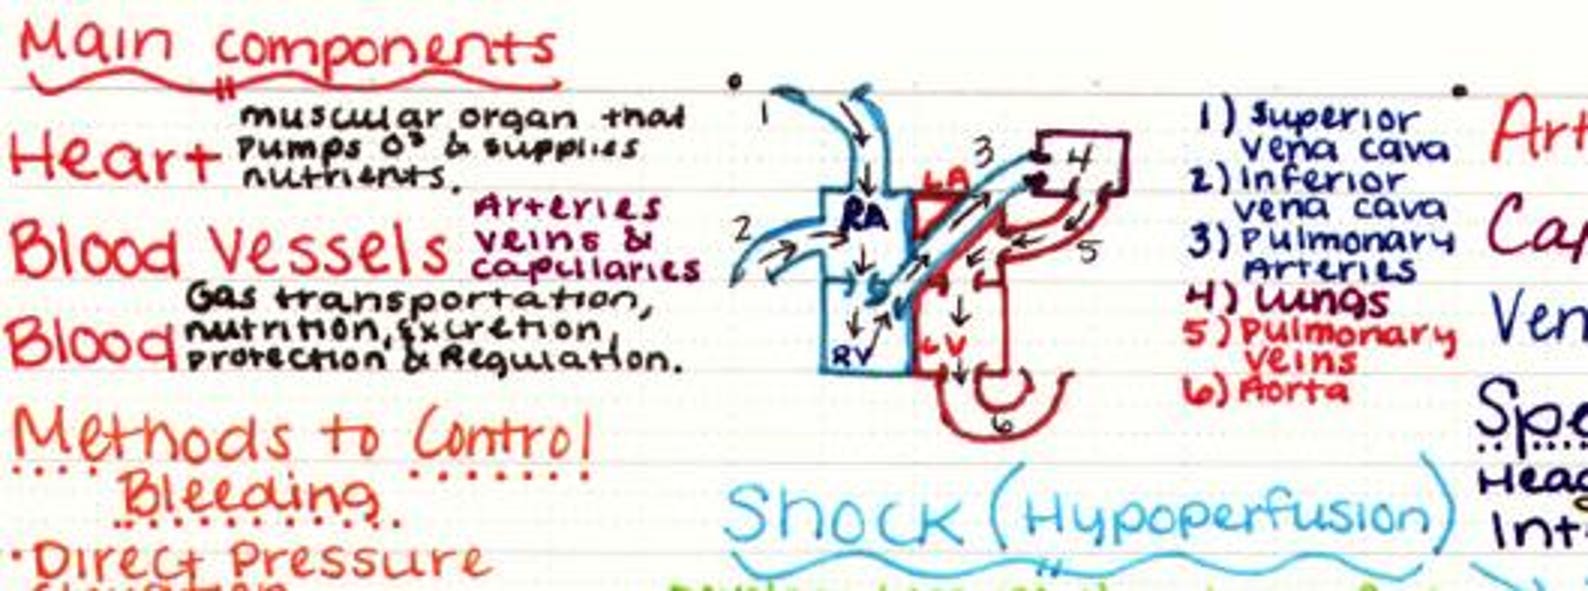 Main components
Heart muscular organ that
pumps O² & supplies
nutrients.
Blood Vessels Arteries
veins &
capillaries
Blood Gas transportation,
nutrition, Excretion,
protection & Regulation.
Methods to Control
Bleeding
• Direct Pressure
1
2
3
4
5
6
RA
LA
RV
LV
1) Superior
vena cava
2) Inferior
vena cava
3) Pulmonary
Arteries
4) Lungs
5) Pulmonary
veins
6) Aorta
Shock (Hypoperfusion)
Art
Cap
Ven
Spe
Head
Int